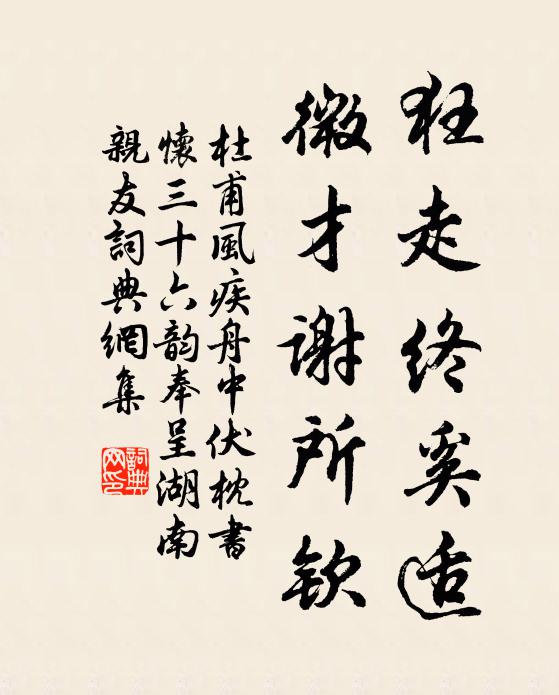 狂走终奚适
微才谢所钦
杜甫風疾舟中伏枕書
懷三十六韵奉呈湖南
親友詞典網集
詞典网印